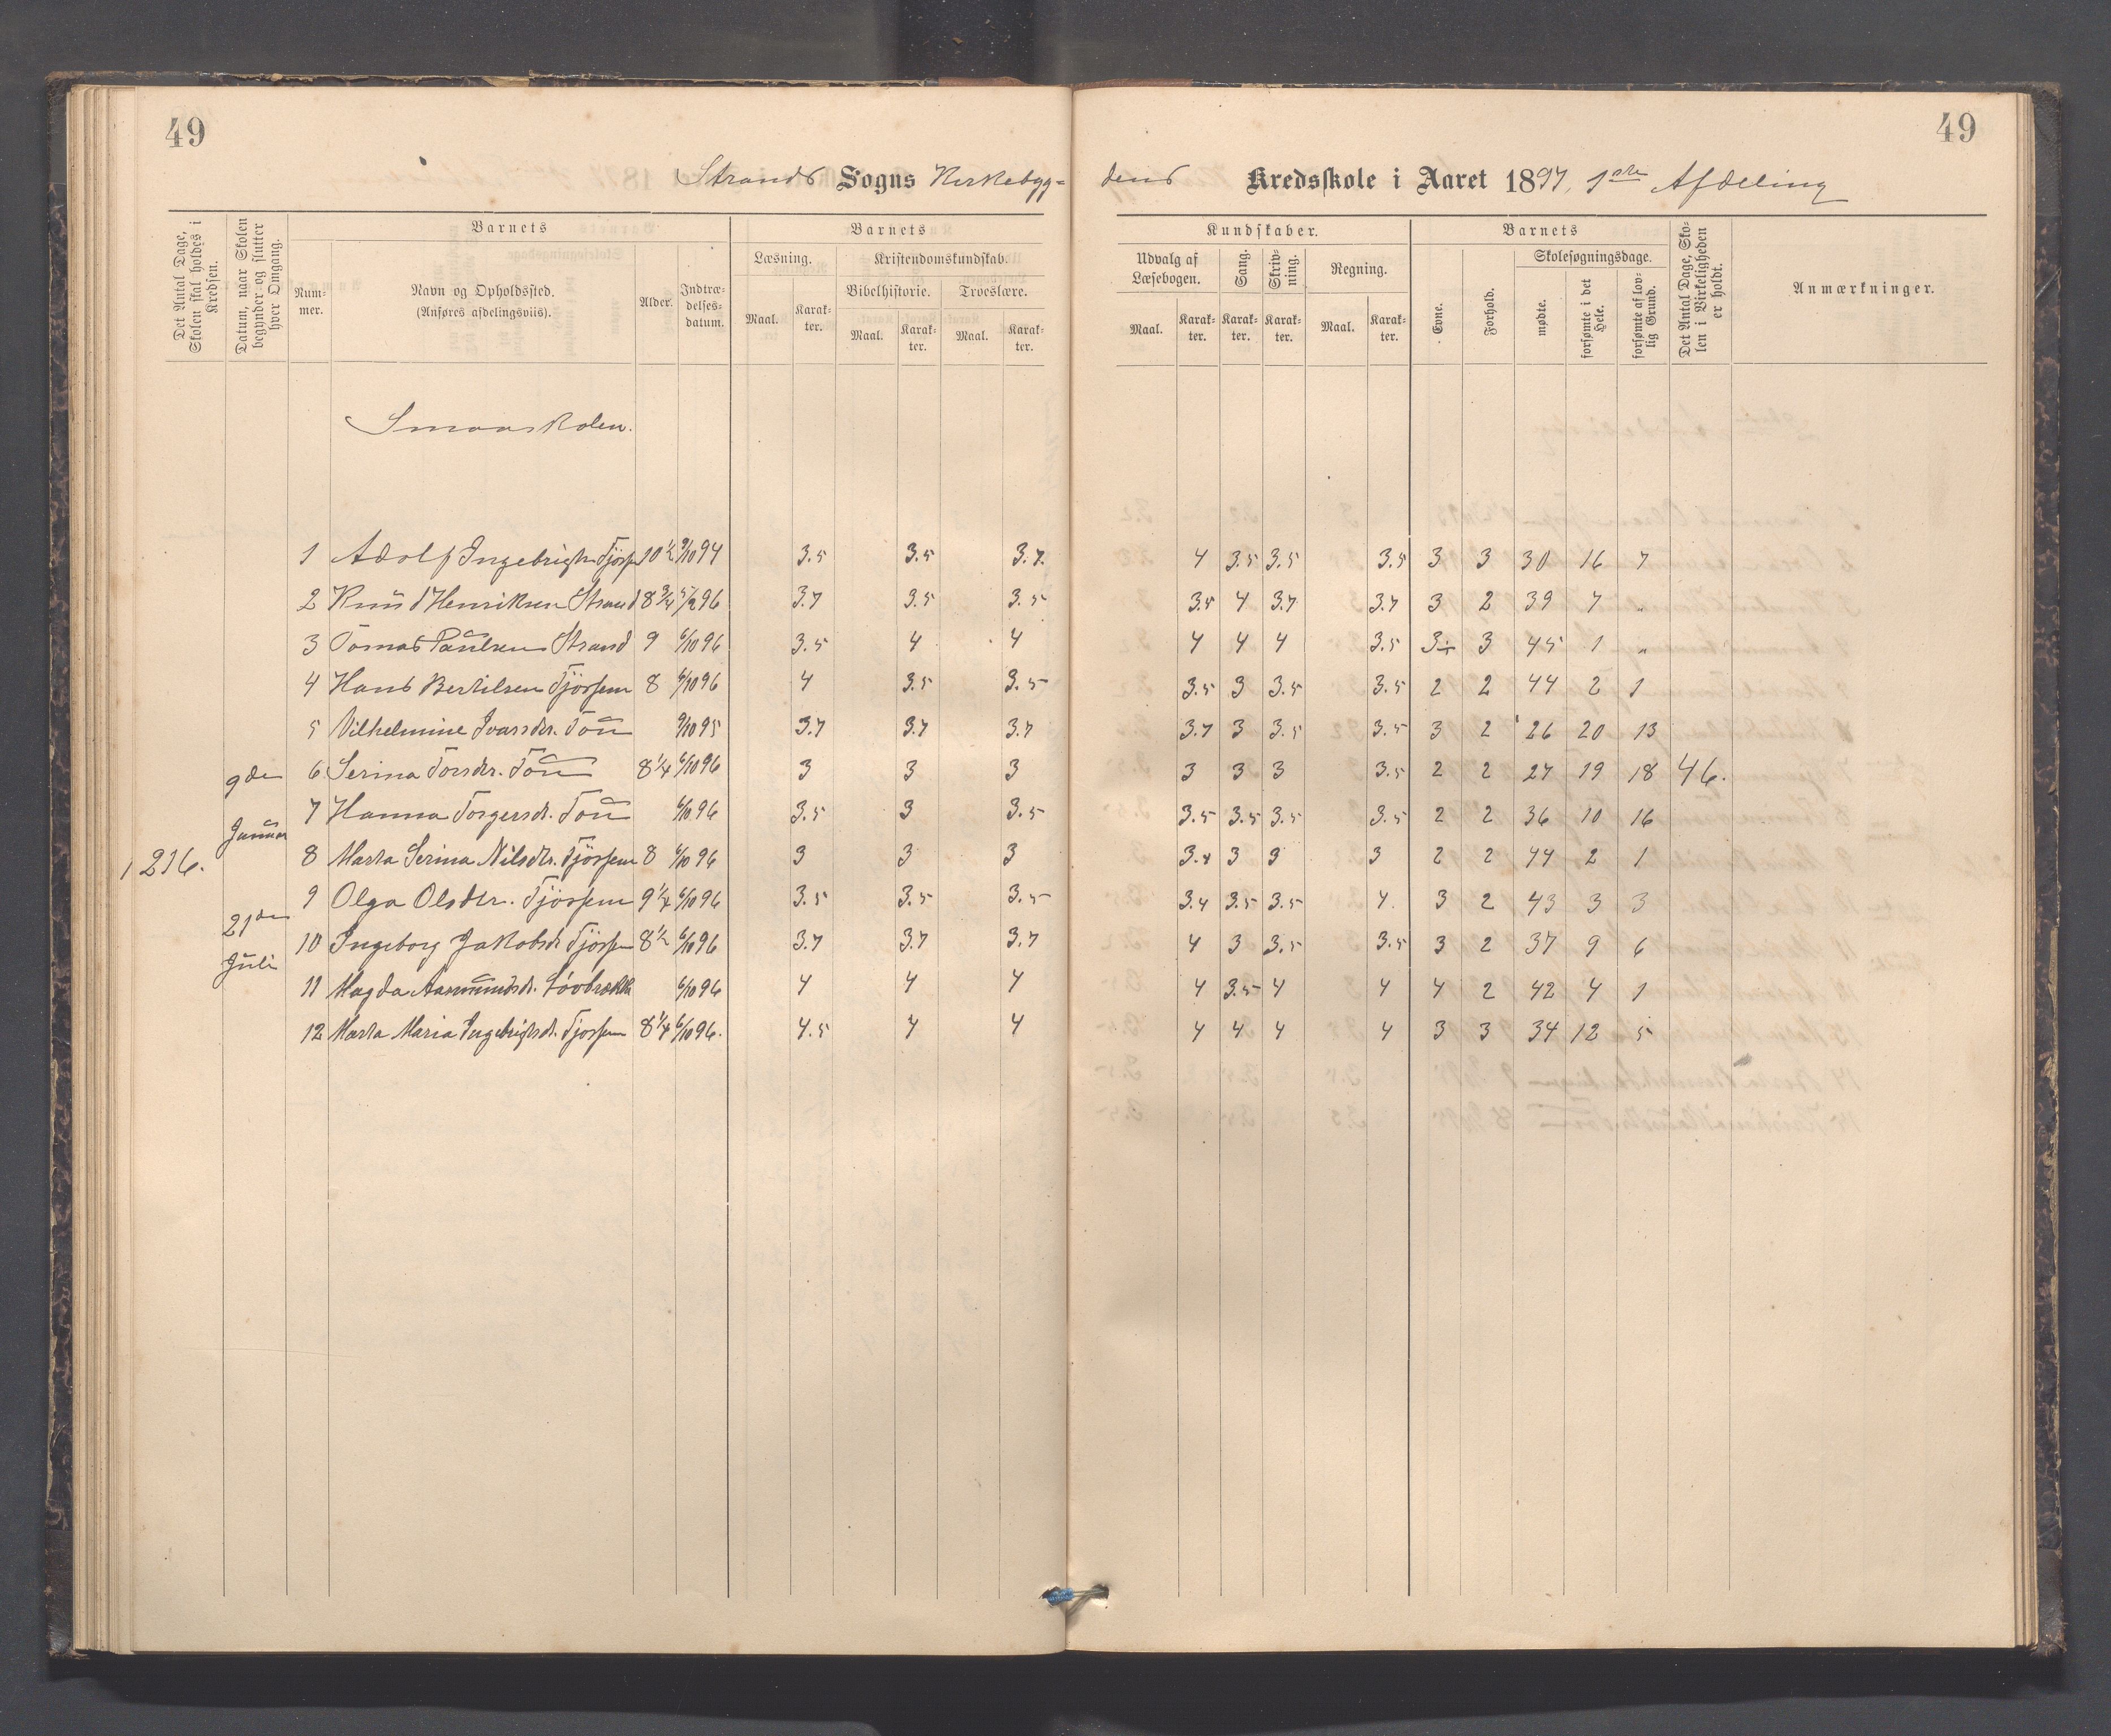 49
49
Strands Sogns Kirkebygdens Kredsskole i Aaret 1897, 1ste Afdeling
Det Antal Dage, Skolen skal holdes i Kredsen.
Datum, naar Skolen begynder og slutter hver Omgang.
Barnets
Nummer.
Navn og Opholdssted.
(Anføres afdelingsviis).
Alder.
Indtrædelsesdatum.
Barnets
Læsning.
Maal.
Karakter.
Kristendomskundskab.
Bibelhistorie.
Maal.
Karakter.
Troeslære.
Maal.
Karakter.
Kundskaber.
Udvalg af Læsebogen.
Maal.
Karakter.
Sang.
Karakter.
Skrivning.
Karakter.
Regning.
Maal.
Karakter.
Barnets
Evne.
Forhold.
Skolesøgningsdage.
mødte.
forsømte i det Hele.
forsømte af lovlig Grund.
Det Antal Dage, Skolen i Virkeligheden er holdt.
Anmærkninger.
Smaaskolen.
1 Adolf Ingebrigtsn Tjösse 10 1/2 9/10 94 3.5 3.5 3.7. 4 3.5 3.5 3.5 3 3 30 16 7
2 Knud Henriksen Strand 8 3/4 5/2 96 3.7 3.5 3.5 3.5 4 3.7 3.7 3 2 39 7 "
3 Tomas Paulsen Strand 9 6/10 96 3.5 4 4 4 4 4 3.5 3÷ 3 45 1 "
4 Hans Bertilsen Tjössem 8 6/10 96 4 3.5 3.5 3.5 3 3.5 3.5 2 2 44 2 1
5 Vilhelmine Ivarsdtr. Tou 9/10 95 3.7 3.7 3.7 3.7 3 3.5 3.5 3 2 26 20 13
9de 6 Serina Torsdtr. Tou 8 1/4 6/10 96 3 3 3 3 3 3 3.5 2 2 27 19 18 46.
Januar 7 Hanna Torgersdt. Tou 6/10 96 3.5 3 3.5 3.5 3.5 3.5 3.5 2 2 36 10 16
1 216. 8 Marta Serina Nilsdtr. Tjössem 8 6/10 96 3 3 3 3.4 3 3 3 2 2 44 2 1
21de 9 Olga Olsdtr. Tjössem 9 1/4 6/10 96 3.5 3.5 3.5 3.4 3.5 3.5 4. 3 2 43 3 3
Juli 10 Ingeborg Jakobsdt Tjössem 8 1/2 6/10 96 3.7 3.7 3.7 4 3 3.5 3.5 3 2 37 9 6
11 Magda Aanundsdt. Løvbrække 6/10 96 4 4 4 4 3.5 4 4 4 2 42 4 1
12 Marta Maria Ingebrigtsdt. Tjossem 8 1/4 6/10 96. 4.5 4 4 4 4 4 4 3 3 34 12 5